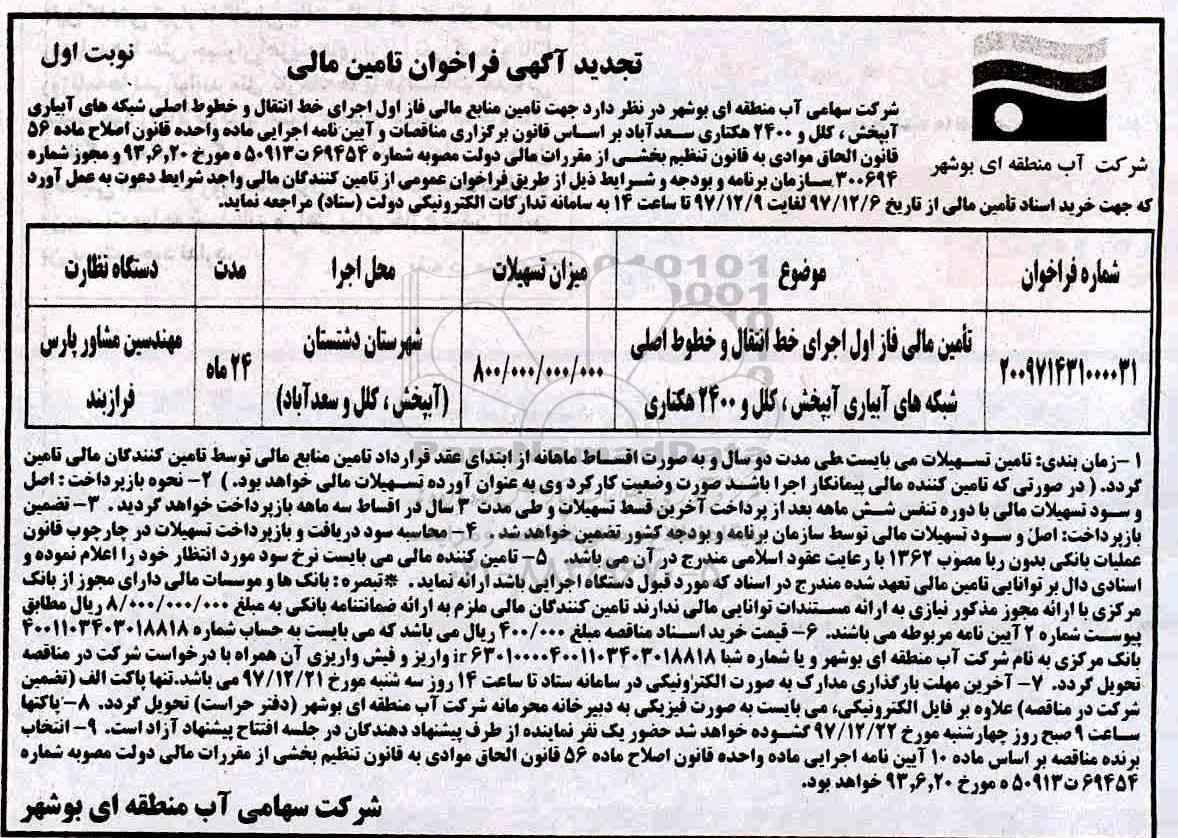 تجدید آگهی فراخوان تامین مالی
نوبت اول
شرکت آب منطقه ای بوشهر
شرکت سهامی آب منطقه ای بوشهر در نظر دارد جهت تامین منابع مالی فاز اول اجرای خط انتقال و خطوط اصلی شبکه های آبیاری
آبپخش ، کلل و ۲۴۰۰ هکتاری سعدآباد بر اساس قانون برگزاری مناقصات و آیین نامه اجرایی ماده واحده قانون اصلاح ماده ۵۶
قانون الحاق موادی به قانون تنظیم بخشی از مقررات مالی دولت مصوبه شماره ۶۹۴۵۴ ت۵۰۹۱۳ ه مورخ ۹۳٫۶٫۲۰ و مجوز شماره
۳۰۰۶۹۴ سازمان برنامه و بودجه و شرایط ذیل از طریق فراخوان عمومی از تامین کنندگان مالی واجد شرایط دعوت به عمل آورد
که جهت خرید اسناد تأمین مالی از تاریخ ۹۷/۱۲/۶ لغایت ۹۷/۱۲/۹ تا ساعت ۱۴ به سامانه تدارکات الکترونیکی دولت (ستاد) مراجعه نماید.
شماره فراخوان
موضوع
میزان تسهیلات
محل اجرا
مدت
دستگاه نظارت
۲۰۰۹۷۱۴۳۱۰۰۰۰۳۱
تأمین مالی فاز اول اجرای خط انتقال و خطوط اصلی
شبکه های آبیاری آبپخش ، کلل و ۲۴۰۰ هکتاری
۸۰۰/۰۰۰/۰۰۰/۰۰۰
شهرستان دشتستان
(آبپخش ، کلل و سعدآباد)
۲۴ ماه
مهندسین مشاور پارس
فرازبند
۱-زمان بندی: تامین تسهیلات می بایست طی مدت دو سال و به صورت اقساط ماهانه از ابتدای عقد قرارداد تامین منابع مالی توسط تامین کنندگان مالی تامین
گردد. ( در صورتی که تامین کننده مالی پیمانکار اجرا باشد صورت وضعیت کارکرد وی به عنوان آورده تسهیلات مالی خواهد بود. ) ۲- نحوه بازپرداخت : اصل
و سود تسهیلات مالی با دوره تنفس شش ماهه بعد از پرداخت آخرین قسط تسهیلات و طی مدت ۳ سال در اقساط سه ماهه بازپرداخت خواهد گردید . ۳- تضمین
بازپرداخت: اصل و سود تسهیلات مالی توسط سازمان برنامه و بودجه کشور تضمین خواهد شد . ۴- محاسبه سود دریافت و بازپرداخت تسهیلات در چارچوب قانون
عملیات بانکی بدون ربا مصوب ۱۳۶۲ با رعایت عقود اسلامی مندرج در آن می باشد . ۵- تامین کننده مالی می بایست نرخ سود مورد انتظار خود را اعلام نموده و
اسنادی دال بر توانایی تامین مالی تعهد شده مندرج در اسناد که مورد قبول دستگاه اجرایی باشد ارائه نماید . *تبصره : بانک ها و موسسات مالی دارای مجوز از بانک
مرکزی با ارائه مجوز مذکور نیازی به ارائه مستندات توانایی مالی ندارند تامین کنندگان مالی ملزم به ارائه ضمانتنامه بانکی به مبلغ ۸/۰۰۰/۰۰۰/۰۰۰ ریال مطابق
پیوست شماره ۲ آیین نامه مربوطه می باشند. ۶- قیمت خرید اسناد مناقصه مبلغ ۴۰۰/۰۰۰ ریال می باشد که می بایست به حساب شماره ۴۰۰۱۱۰۳۴۰۳۰۱۸۸۱۸
بانک مرکزی به نام شرکت آب منطقه ای بوشهر و یا شماره شبا ir ۶۳۰۱۰۰۰۰۴۰۰۱۱۰۳۴۰۳۰۱۸۸۱۸ واریز و فیش واریزی آن همراه با درخواست شرکت در مناقصه
تحویل گردد. ۷- آخرین مهلت بارگذاری مدارک به صورت الکترونیکی در سامانه ستاد تا ساعت ۱۴ روز سه شنبه مورخ ۹۷/۱۲/۲۱ می باشد.تنها پاکت الف (تضمین
شرکت در مناقصه) علاوه بر فایل الکترونیکی، می بایست به صورت فیزیکی به دبیرخانه محرمانه شرکت آب منطقه ای بوشهر (دفتر حراست) تحویل گردد. ۸-پاکتها
ساعت ۹ صبح روز چهارشنبه مورخ ۹۷/۱۲/۲۲ گشوده خواهد شد حضور یک نفر نماینده از طرف پیشنهاد دهندگان در جلسه افتتاح پیشنهاد آزاد است. ۹- انتخاب
برنده مناقصه بر اساس ماده ۱۰ آیین نامه اجرایی ماده واحده قانون اصلاح ماده ۵۶ قانون الحاق موادی به قانون تنظیم بخشی از مقررات مالی دولت مصوبه شماره
۶۹۴۵۴ ت۵۰۹۱۳ ه مورخ ۹۳٫۶٫۲۰ خواهد بود.
شرکت سهامی آب منطقه ای بوشهر